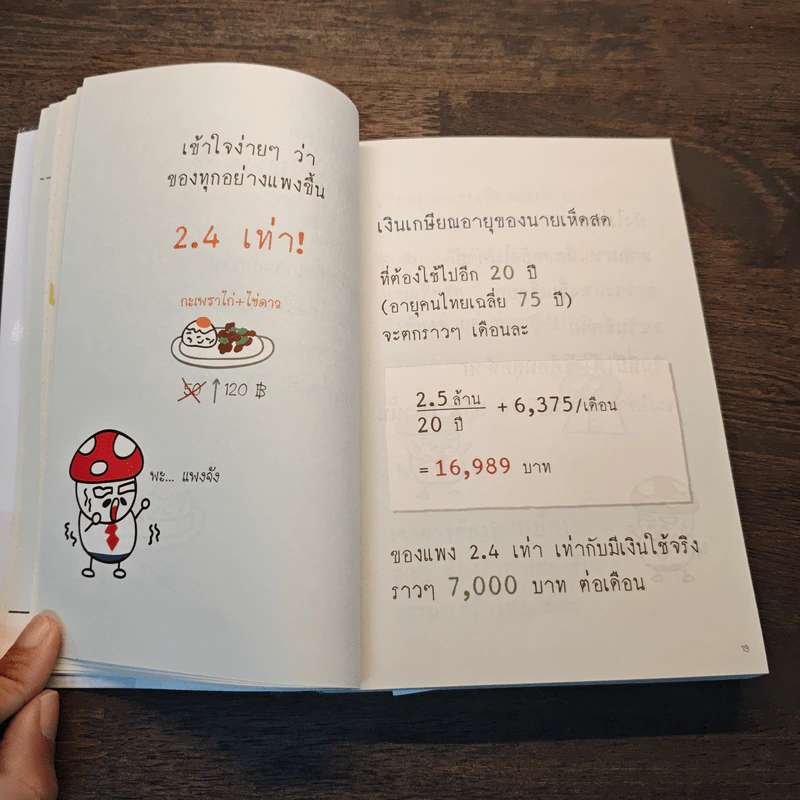 เข้าใจง่ายๆ ว่า
ของทุกอย่างแพงขึ้น
2.4 เท่า!
กะเพราไก่+ไข่ดาว
50 ↑ 120 ฿
พะ... แพงจัง
เงินเกษียณอายุของนายเห็ดสด
ที่ต้องใช้ไปอีก 20 ปี
(อายุคนไทยเฉลี่ย 75 ปี)
จะตกราวๆ เดือนละ
2.5 ล้าน
20 ปี
+ 6,375/เดือน
= 16,989 บาท
ของแพง 2.4 เท่า เท่ากับมีเงินใช้จริง
ราวๆ 7,000 บาท ต่อเดือน
19